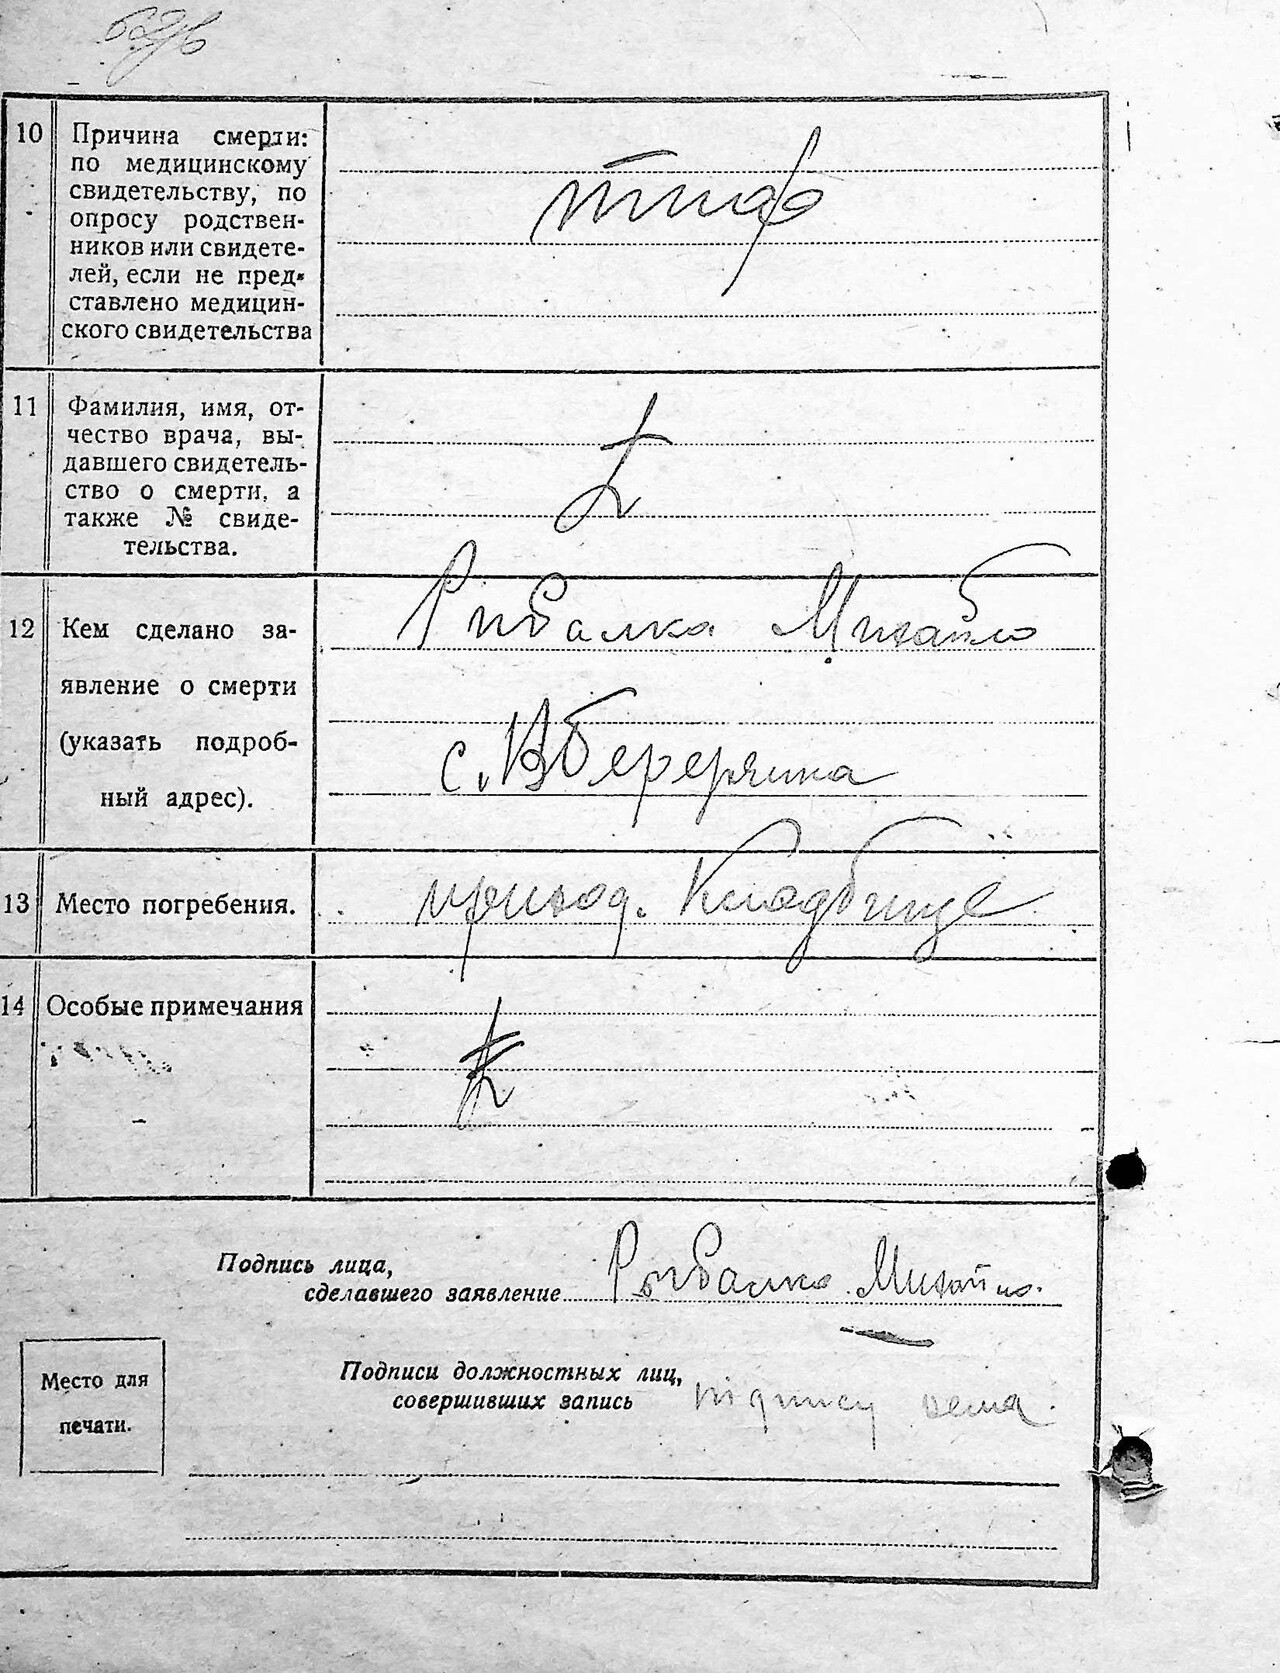 10 Причина смерти:
по медицинскому
свидетельству, по
опросу родствен-
ников или свидете-
лей, если не пред-
ставлено медицин-
ского свидетельства
тиф
11 Фамилия, имя, от-
чество врача, вы-
давшего свидетель-
ство о смерти, а
также № свиде-
тельства.
12 Кем сделано за-
явление о смерти
(указать подроб-
ный адрес).
Рибалка Михайло
с.
13 Место погребения.
приход. Кладбище
14 Особые примечания
Подпись лица,
сделавшего заявление Рыбалко Михайло.
Место для
печати.
Подписи должностных лиц,
совершивших запись
підпису нема.